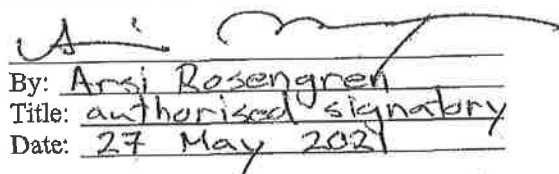 By: Arsi Rosengren
Title: authorised signatory
Date: 27 May 2021